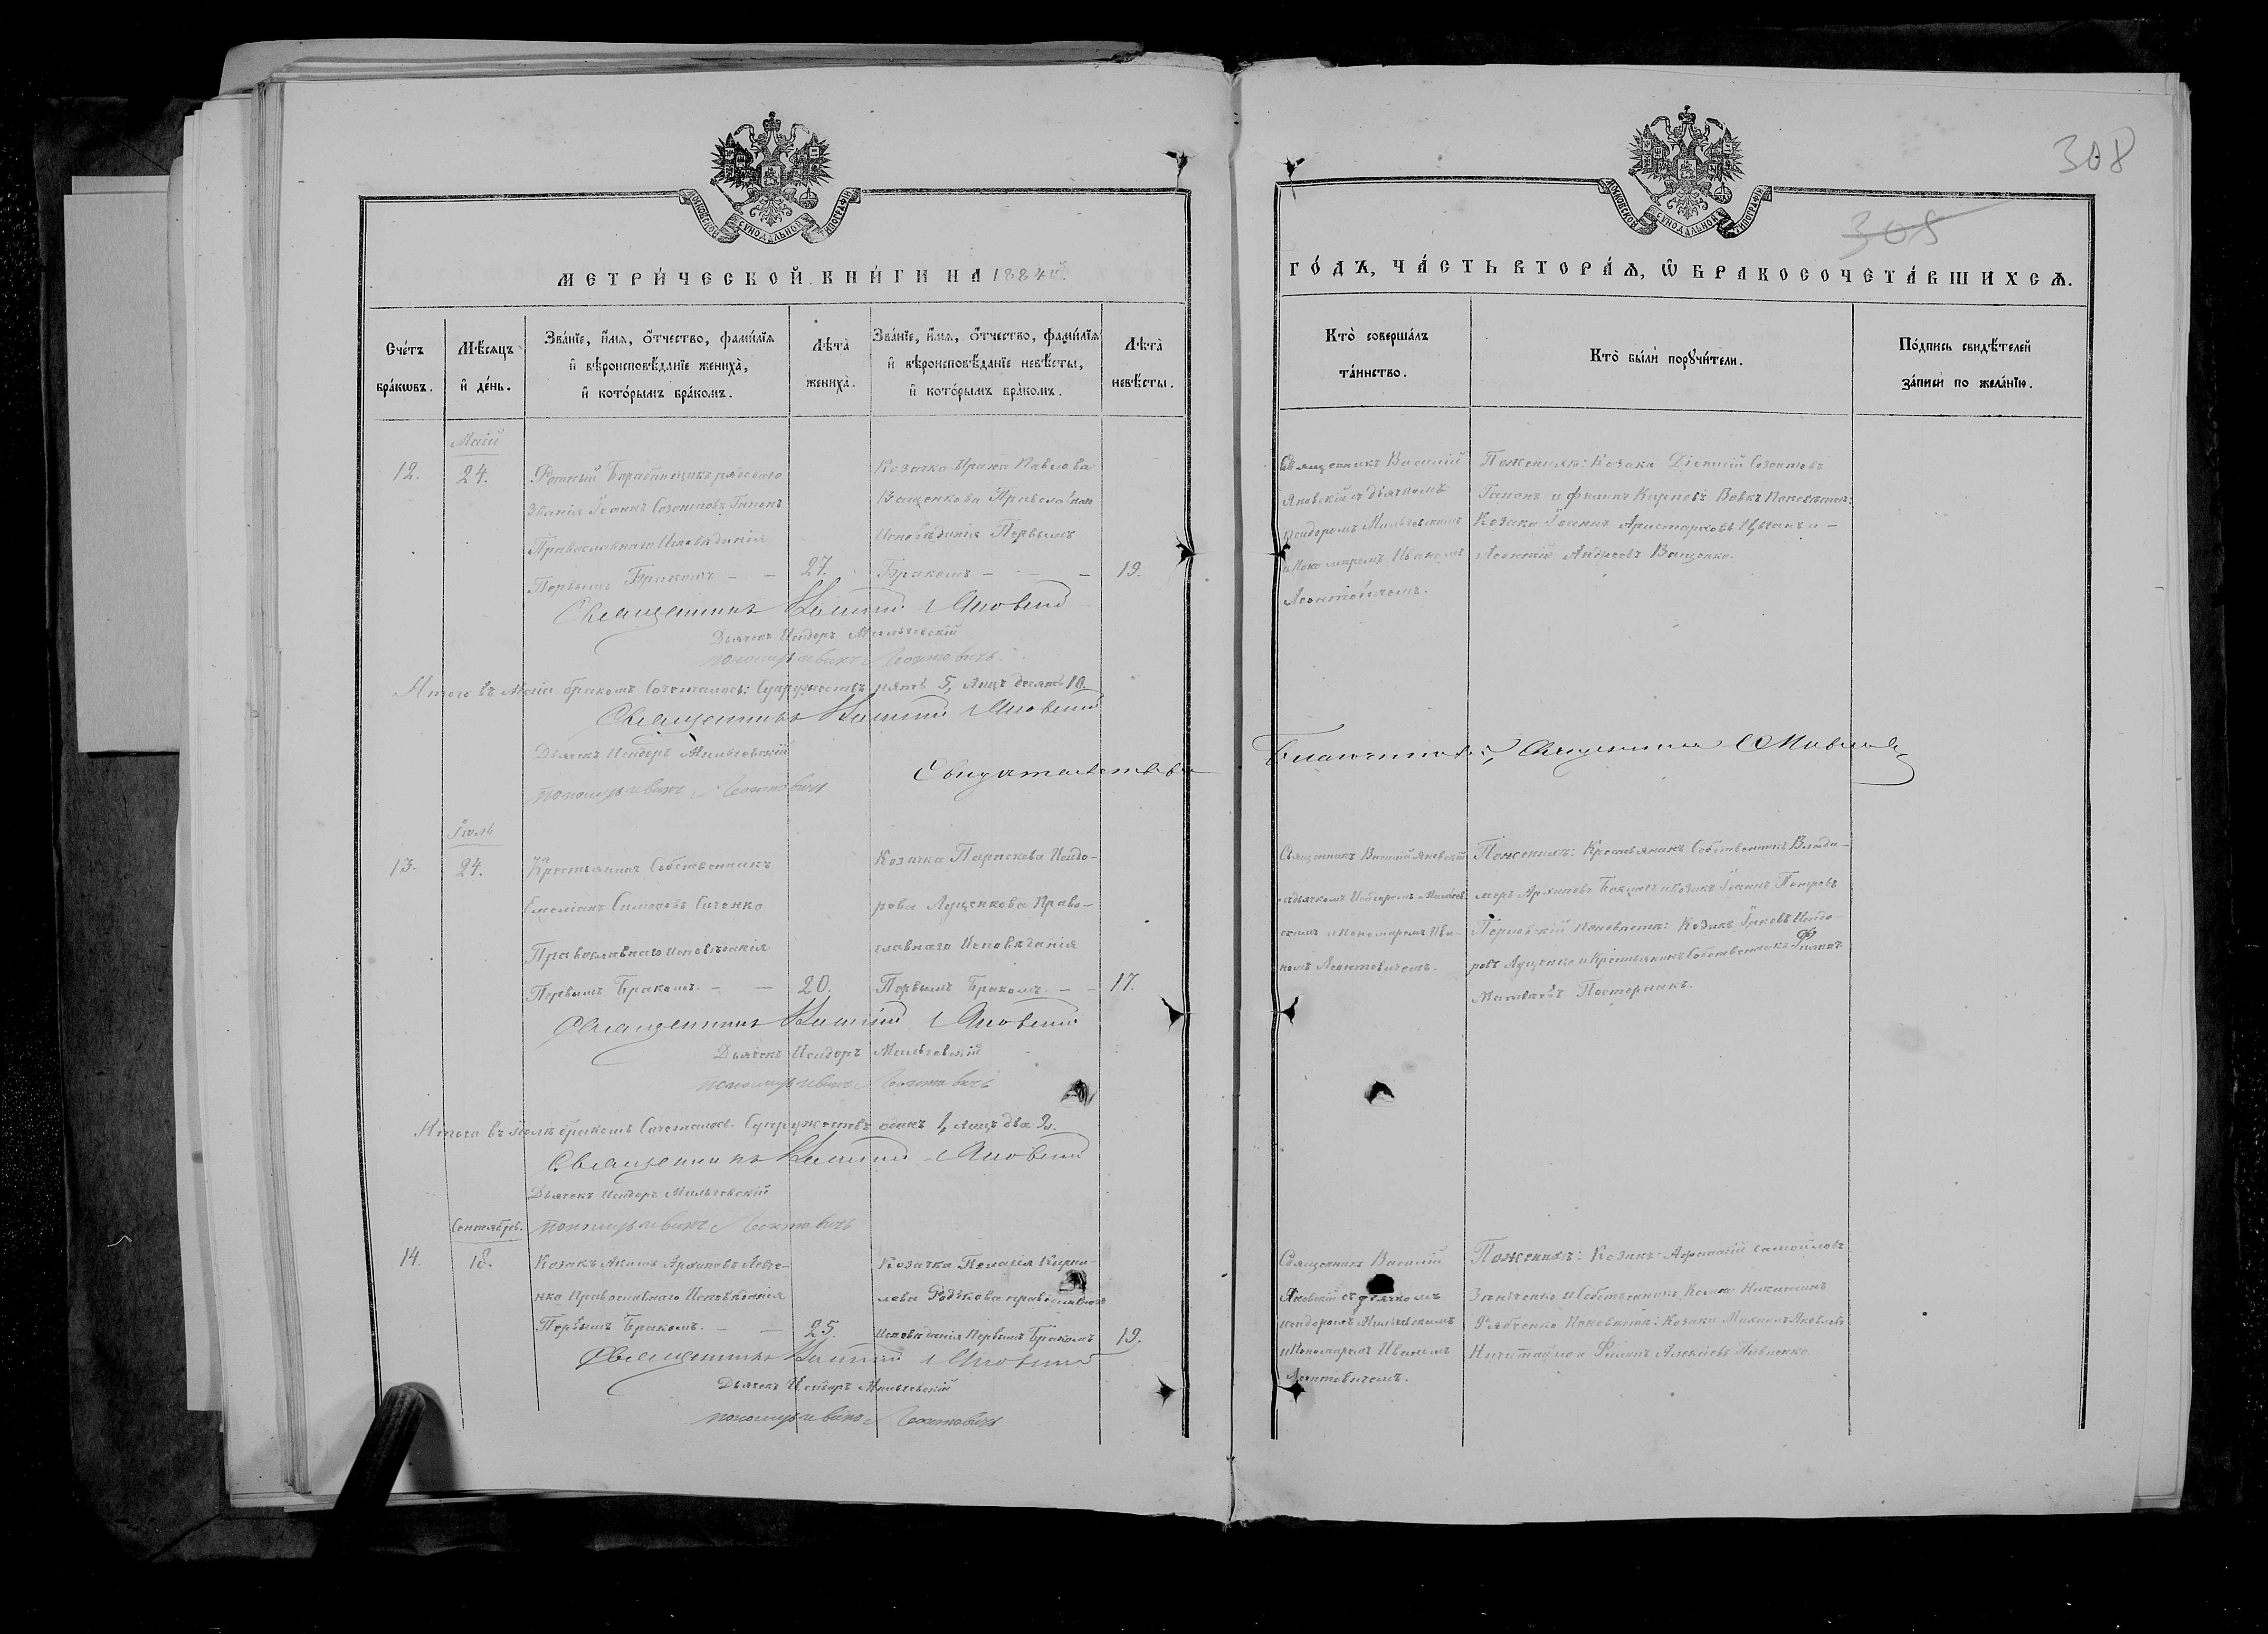 308
308
МОСКОВСКОЙ СѴНОДАЛЬНОЙ ТИПОГРАФІИ
МОСКОВСКОЙ СѴНОДАЛЬНОЙ ТИПОГРАФІИ
МЕТРИ́ЧЕСКОЙ КНИ́ГИ НА 1884й.
ГО́ДЪ, ЧА́СТЬ ВТОРА́Ѧ, Ѽ БРАКОСОЧЕТА́ВШИХСѦ.
Сче́тъ бра́кѡвъ.
Мѣ́сяцъ и҆ де́нь.
Зва́нїе, и҆́мя, о҆́тчество, фами́лїя
и҆ вѣроисповѣ́данїе жениха̀,
и҆ кото́рымъ бра́комъ.
Лѣта̀ жениха̀.
Зва́нїе, и҆́мя, о҆́тчество, фами́лїя
и҆ вѣроисповѣ́данїе невѣ́сты,
и҆ кото́рымъ бра́комъ.
Лѣта̀ невѣ́сты.
Кто̀ соверша́лъ та́инство.
Кто̀ бы́ли порꙋчи́тели.
По́дпись свидѣ́телей за́писи по жела́нїю.
Май
12.
24.
Ротный Барабанщикъ рядоваго
Званія Іоаннъ Созонтовъ Гапонъ
Православнаго Исповѣданія
Первымъ Бракомъ - -
27.
Козачка Ирина Павлова
Ващенкова Православнаго
Исповѣданія Первымъ
Бракомъ - - -
19.
Священникъ Василій
Яновскій съ дьячкомъ
Исидоромъ Мильчевскимъ
и Пономаремъ Иваномъ
Леонтовичемъ.
По женихѣ: Козаки Діонисій Созонтовъ
Гапонъ и Филипъ Карповъ Вовкъ По невѣстѣ:
Козаки Іоаннъ Аристарховъ Цыганъ и -
Леонтій Андреевъ Ващенко.
Священникъ Василій Яновскій
Дьячекъ Исидоръ Мильчевскій
пономарь Иванъ Леонтовичъ
Итого въ Маѣ бракомъ Сочеталось: Супружествъ пять 5, Лицъ десять 10.
Священникъ Василій Яновскій
Дьячекъ Исидоръ Мильчевскій
пономарь Иванъ Леонтовичъ
Свидѣтельствовалъ
Благочинный, Священникъ
Іюль
13.
24.
Крестьянинъ Собственникъ
Емеліанъ
Православнаго Исповѣданія
Первымъ Бракомъ. - -
20.
Козачка Параскева Исидо-
рова Луценкова Право-
славнаго Исповѣданія
Первымъ Бракомъ - -
17.
Священникъ Василій Яновскій
съ дьячкомъ Исидоромъ Мильчев-
скимъ и Пономаремъ Ива-
номъ Леонтовичемъ.
По женихѣ: Крестьянинъ Собственникъ Влади-
міръ Архиповъ и Козакъ Іоаннъ Петровъ
По невѣстѣ: Козакъ Іаковъ Исидо-
ровъ Луценко и Крестьянинъ Собственникъ
Матвѣевъ Пастернакъ.
Священникъ Василій Яновскій
Дьячекъ Исидоръ Мильчевскій
пономарь Иванъ Леонтовичъ
Итого въ Іюлѣ бракомъ Сочеталось Супружествъ одинъ 1, Лицъ два 2.
Священникъ Василій Яновскій
Дьячекъ Исидоръ Мильчевскій
пономарь Иванъ Леонтовичъ
Сентябрь.
14.
18.
Козакъ Архиповъ Левче-
нко Православнаго Исповѣданія
Первымъ Бракомъ. - -
25.
Козачка Пелагія Кирил-
лова православнаго
Исповѣданія Первымъ Бракомъ
19.
Священникъ Василій
Яновскій съ дьячкомъ
Исидоромъ Мильчевскимъ
и Пономаремъ Иваномъ
Леонтовичемъ.
По женихѣ: Козакъ Афанасій Самойловъ
и Собственникъ
По невѣстѣ: Козаки Михаилъ Яковлевъ
и Филипъ Алексѣевъ
Священникъ Василій Яновскій
Дьячекъ Исидоръ Мильчевскій
пономарь Иванъ Леонтовичъ